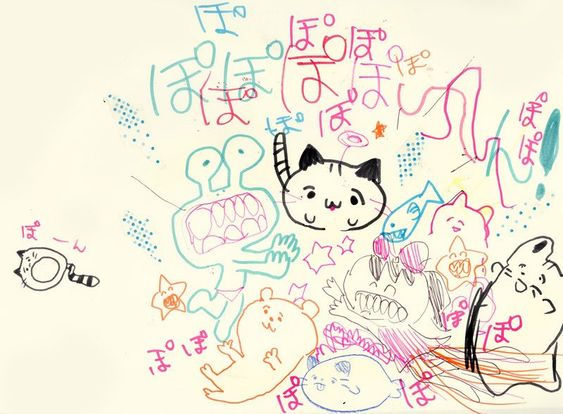 ぽ
ぽ ぽ ぽ ぽ ぽ
ぽ ぽ ぽ ぽ
ぽ ぽ ぽ
ぽ
ぽーん
ぽ ぽ
ぽ ぽ
ぽ ぽ